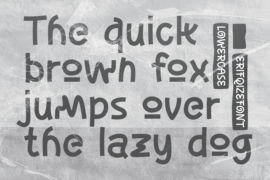 The quick
brown fox
jumps over
the lazy dog
LOWERCASE
ERIFQIZEFONT